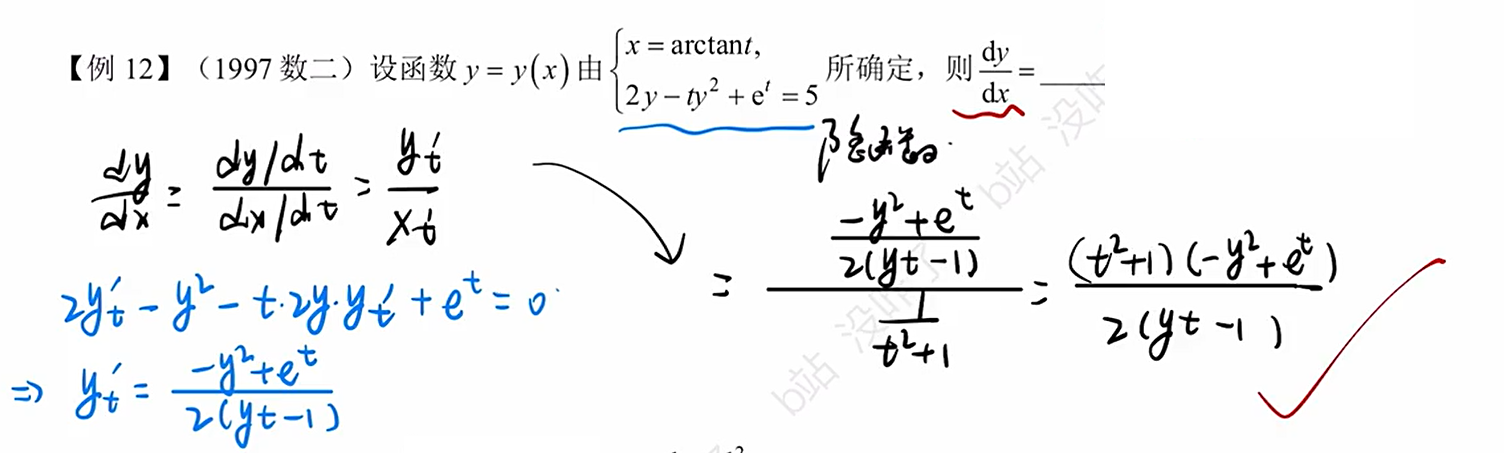 【例 12】（1997 数二）设函数 y = y(x) 由 { x = arctan t, 2y − ty² + eᵗ = 5 所确定，则 dy/dx = ____
隐函数
dy/dx = (dy/dt)/(dx/dt) = y't/x't
2y't − y² − t·2y·y't + eᵗ = 0
⇒ y't = (−y² + eᵗ)/(2(yt − 1))
= ((−y² + eᵗ)/(2(yt − 1)))/(1/(t² + 1)) = ((t² + 1)(−y² + eᵗ))/(2(yt − 1))
b站
b站